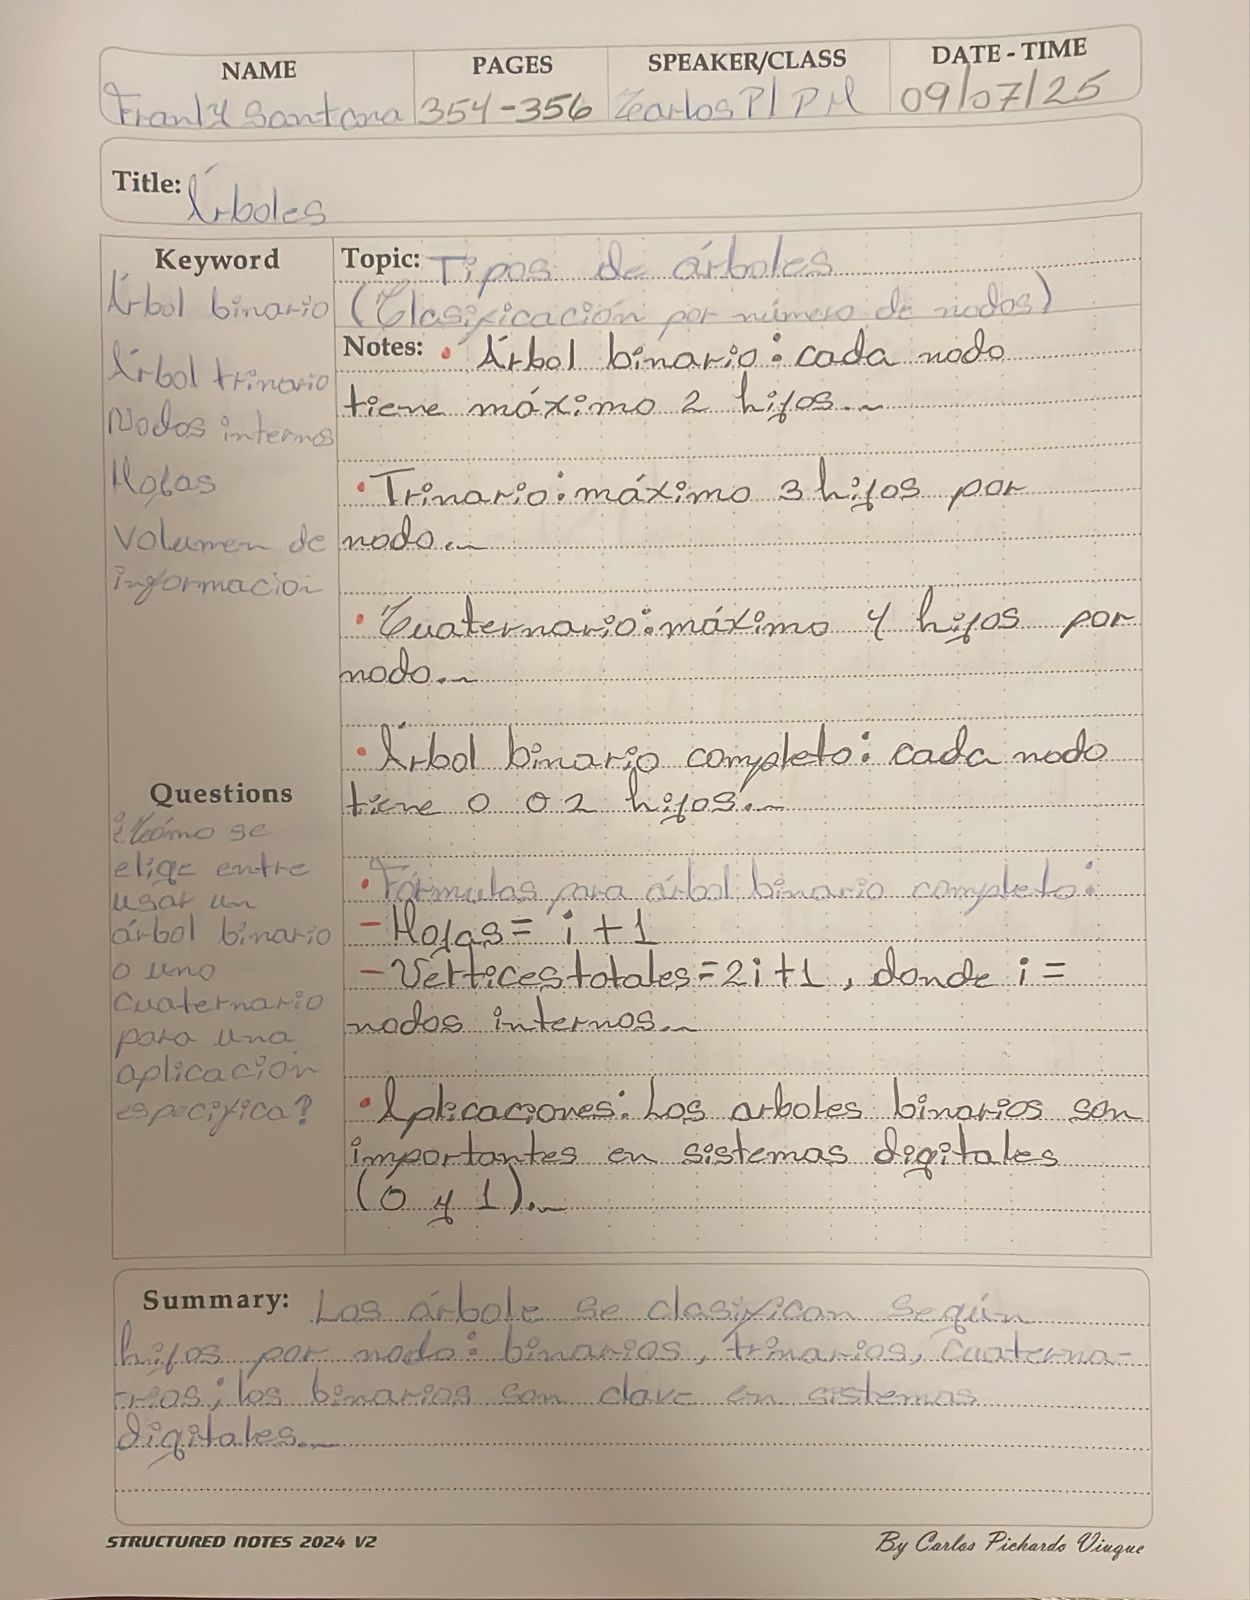 NAME PAGES SPEAKER/CLASS DATE - TIME
Franly Santana 354-356 Carlos P/ PM 09/07/25
Title: Árboles
Keyword
Árbol binario
Árbol trinario
Nodos internos
Hojas
Volumen de
informacion
Questions
¿Cómo se
elige entre
usar un
árbol binario
o uno
cuaternario
para una
aplicación
especifica?
Topic: Tipos de árboles
(Clasificación por número de nodos)
Notes: • Árbol binario: cada nodo
tiene máximo 2 hijos.
• Trinario: máximo 3 hijos por
nodo.
• Cuaternario: máximo 4 hijos por
nodo.
• Árbol binario completo: cada nodo
tiene 0 o 2 hijos.
• Fórmulas para árbol binario completo:
- Hojas = i + 1
- Vértices totales = 2i+1, donde i =
nodos internos.
• Aplicaciones: Los arboles binarios son
importantes en sistemas digitales
(0 y 1).
Summary: Los árbole se clasifican según
hijos por nodo: binarios, trinarios, cuaterna-
rios; los binarios son clave en sistemas
digitales.
STRUCTURED NOTES 2024 V2
By Carlos Pichardo Viuque